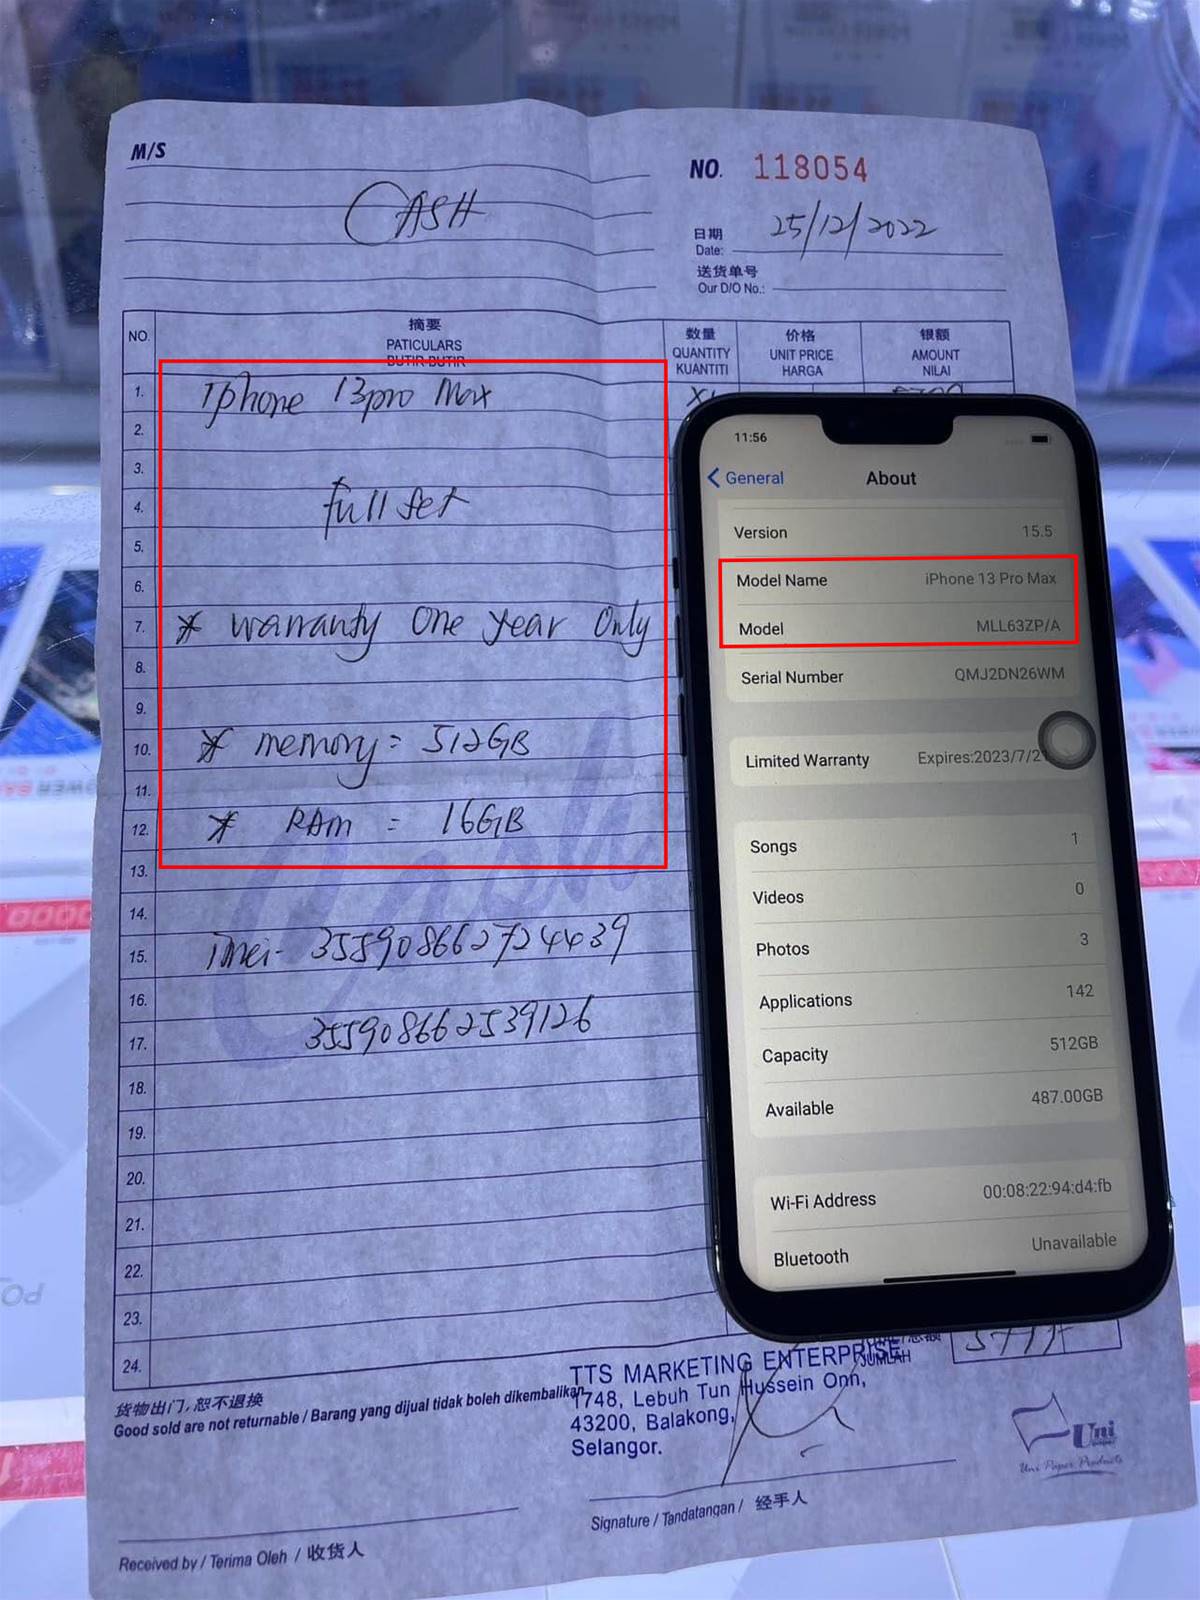 M/S
CASH
NO. 118054
日期
Date: 25/12/2022
送货单号
Our D/O No.:
NO.
摘要
PATICULARS
BUTIR-BUTIR
数量
QUANTITY
KUANTITI
价格
UNIT PRICE
HARGA
银额
AMOUNT
NILAI
1. Iphone 13pro Max X1
2.
3.
4. full set
5.
6.
7. * warranty One year Only
8.
9.
10. * memory = 512GB
11.
12. * RAM = 16GB
13.
14.
15. imei- 355908662724439
16.
17. 355908662539126
18.
19.
20.
21.
22.
23.
24.
JUMLAH
货物出门,恕不退换
Good sold are not returnable / Barang yang dijual tidak boleh dikembalikan
TTS MARKETING ENTERPRISE
1748, Lebuh Tun Hussein Onn,
43200, Balakong,
Selangor.
Uni
Uni Paper Products
Signature / Tandatangan / 经手人
Received by / Terima Oleh / 收货人
11:56
General
About
Version 15.5
Model Name iPhone 13 Pro Max
Model MLL63ZP/A
Serial Number QMJ2DN26WM
Limited Warranty Expires:2023/7/21
Songs 1
Videos 0
Photos 3
Applications 142
Capacity 512GB
Available 487.00GB
Wi-Fi Address 00:08:22:94:d4:fb
Bluetooth Unavailable